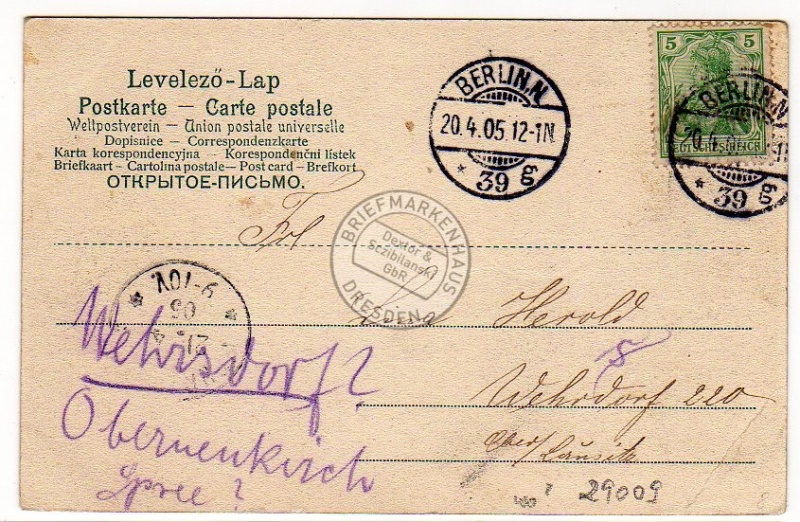 Levelező-Lap
Postkarte — Carte postale
Weltpostverein — Union postale universelle
Dopisnice — Correspondenzkarte
Karta korespondencyjna — Korespondenční listek
Briefkaart — Cartolina postale — Post card — Brefkort
ОТКРЫТОЕ-ПИСЬМО.
BERLIN.N.
20.4.05 12-1N
* 39 g
5 5
DEUTSCHES REICH
BERLIN.N.
20.4
* 39 g
BRIEFMARKENHAUS
Dextor &
Sczibilanski
GbR
DRESDEN
Frl
Herold
Wehrdorf 220
Ober/Lausitz
9-10V.
05
21.
Wehrsdorf?
Oberneukirch
Spree ?
s
? 29009